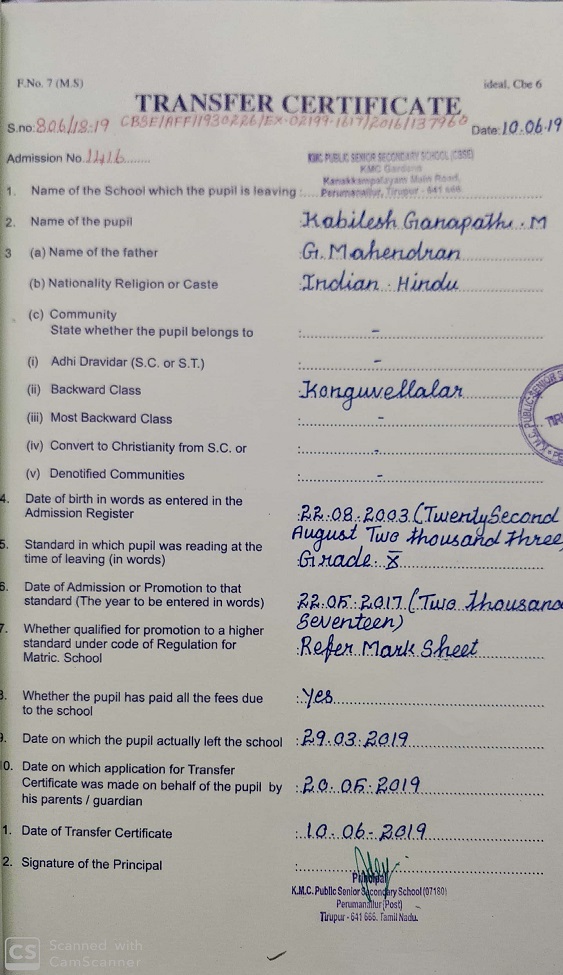 F.No. 7 (M.S) ideal, Cbe 6
TRANSFER CERTIFICATE
S.no: 806/18-19 CBSE/AFF/1930226/EX-02199-1617/2016/137960 Date: 10.06.19
Admission No. 1416 KMC PUBLIC SENIOR SECONDARY SCHOOL (CBSE)
KMC Gardens
Kanakkampalayam Main Road,
1. Name of the School which the pupil is leaving : Perumanallur, Tirupur - 641 666.
2. Name of the pupil Kabilesh Ganapathi . M
3 (a) Name of the father : G. Mahendran
(b) Nationality Religion or Caste : Indian - Hindu
(c) Community
State whether the pupil belongs to : -
(i) Adhi Dravidar (S.C. or S.T.) : -
(ii) Backward Class : Konguvellalar
(iii) Most Backward Class : -
(iv) Convert to Christianity from S.C. or : -
(v) Denotified Communities : -
4. Date of birth in words as entered in the
Admission Register : 22.08.2003 (Twenty Second
August Two thousand three
5. Standard in which pupil was reading at the
time of leaving (in words) : Grade. X
6. Date of Admission or Promotion to that
standard (The year to be entered in words) : 22.05.2017 (Two thousand
Seventeen)
7. Whether qualified for promotion to a higher
standard under code of Regulation for : Refer Mark Sheet
Matric. School
8. Whether the pupil has paid all the fees due : Yes
to the school
9. Date on which the pupil actually left the school : 29.03.2019
0. Date on which application for Transfer
Certificate was made on behalf of the pupil by : 20.05.2019
his parents / guardian
1. Date of Transfer Certificate : 10.06-2019
2. Signature of the Principal :
Principal
K.M.C. Public Senior Secondary School (07180)
Perumanallur (Post)
Tirupur - 641 666. Tamil Nadu.
CS Scanned with
CamScanner